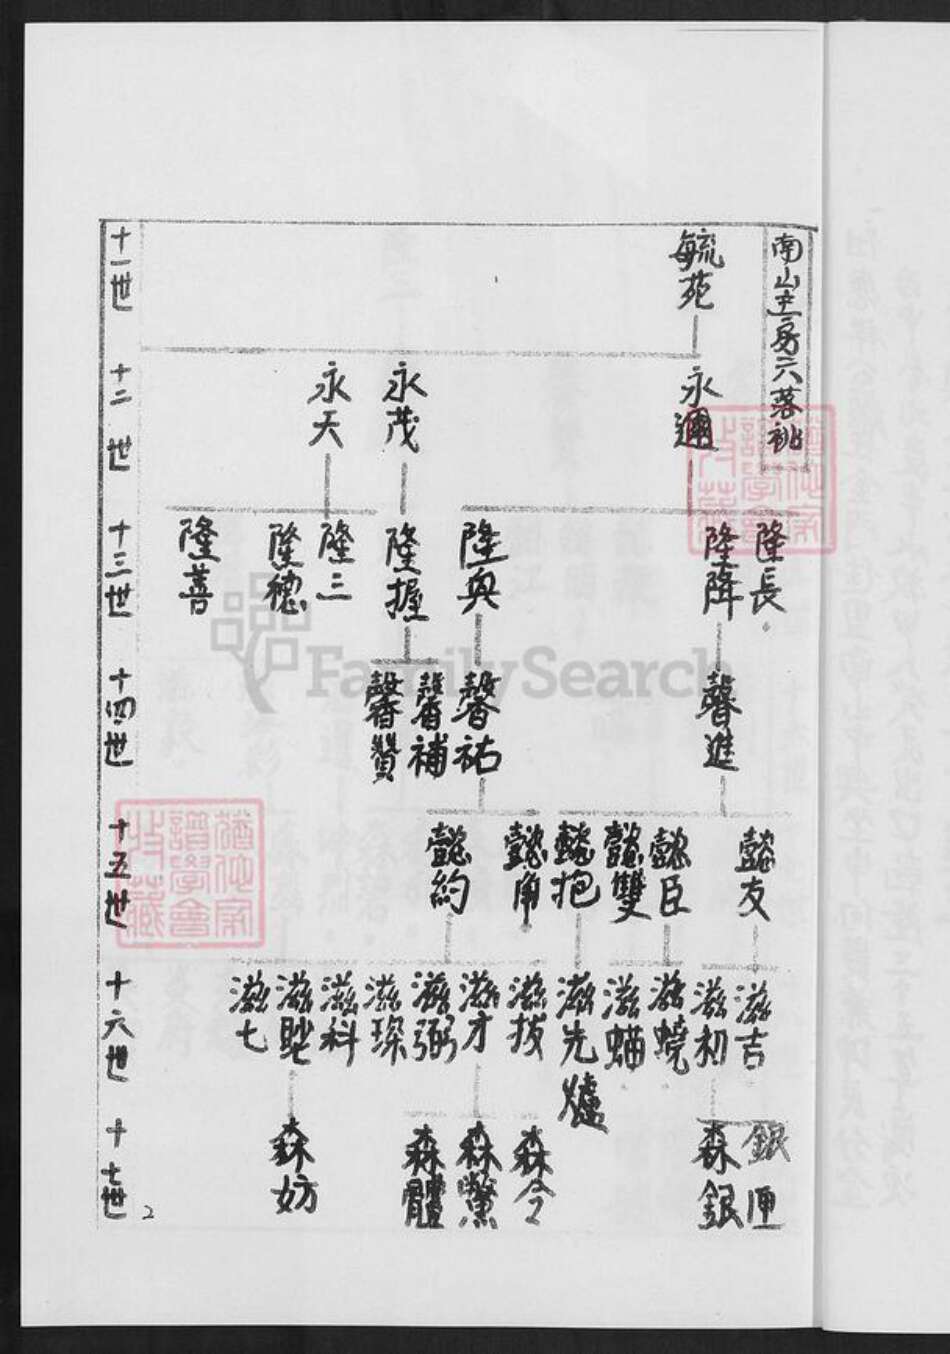 南山主房六落祧
十一世
毓苑
十二世
永邇
永茂
永天
十三世
隆長
隆降
隆與
隆握
隆三
隆穗
隆善
十四世
馨進
馨祐
馨補
馨贊
十五世
懿友
懿臣
懿雙
懿抱
懿角
懿約
十六世
滋吉
滋初
滋蟯
滋蟎
滋先
爐
滋拔
滋才
滋弼
滋琛
滋科
滋
滋七
十七世
銀匣
森銀
森令
森鱉
森體
森妨
2
FamilySearch